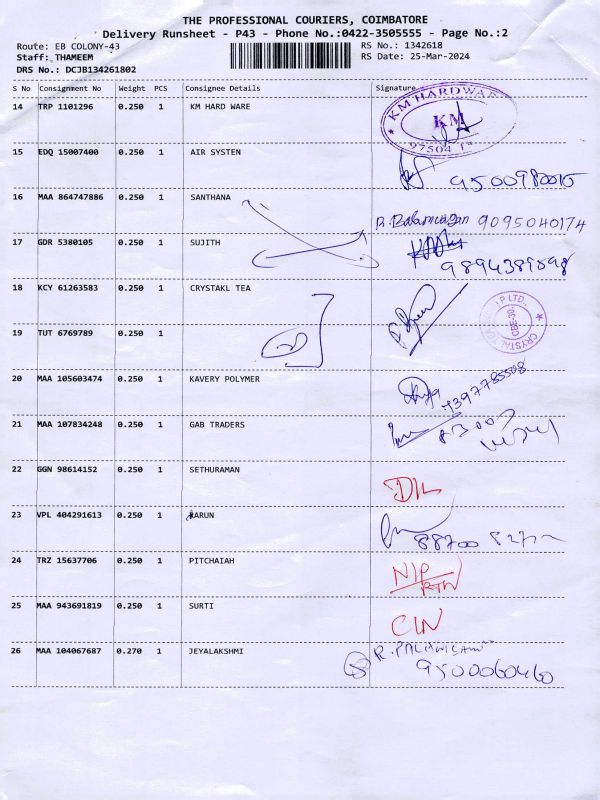 THE PROFESSIONAL COURIERS, COIMBATORE
Delivery Runsheet - P43 - Phone No.:0422-3505555 - Page No.:2
Route: EB COLONY-43 RS No.: 1342618
Staff: THAMEEM RS Date: 25-Mar-2024
DRS No.: DCJB134261802
S No Consignment No Weight PCS Consignee Details Signature
14 TRP 1101296 0.250 1 KM HARD WARE KM HARDWARE KM
15 EDQ 15007400 0.250 1 AIR SYSTEN
16 MAA 864747886 0.250 1 SANTHANA 9095040174
17 GDR 5380105 0.250 1 SUJITH
18 KCY 61263583 0.250 1 CRYSTAKL TEA
19 TUT 6769789 0.250 1
20 MAA 105603474 0.250 1 KAVERY POLYMER
21 MAA 107834248 0.250 1 GAB TRADERS
22 GGN 98614152 0.250 1 SETHURAMAN D/L
23 VPL 404291613 0.250 1 ARUN
24 TRZ 15637706 0.250 1 PITCHAIAH N/P RTN
25 MAA 943691819 0.250 1 SURTI C/N
26 MAA 104067687 0.270 1 JEYALAKSHMI 9500060460